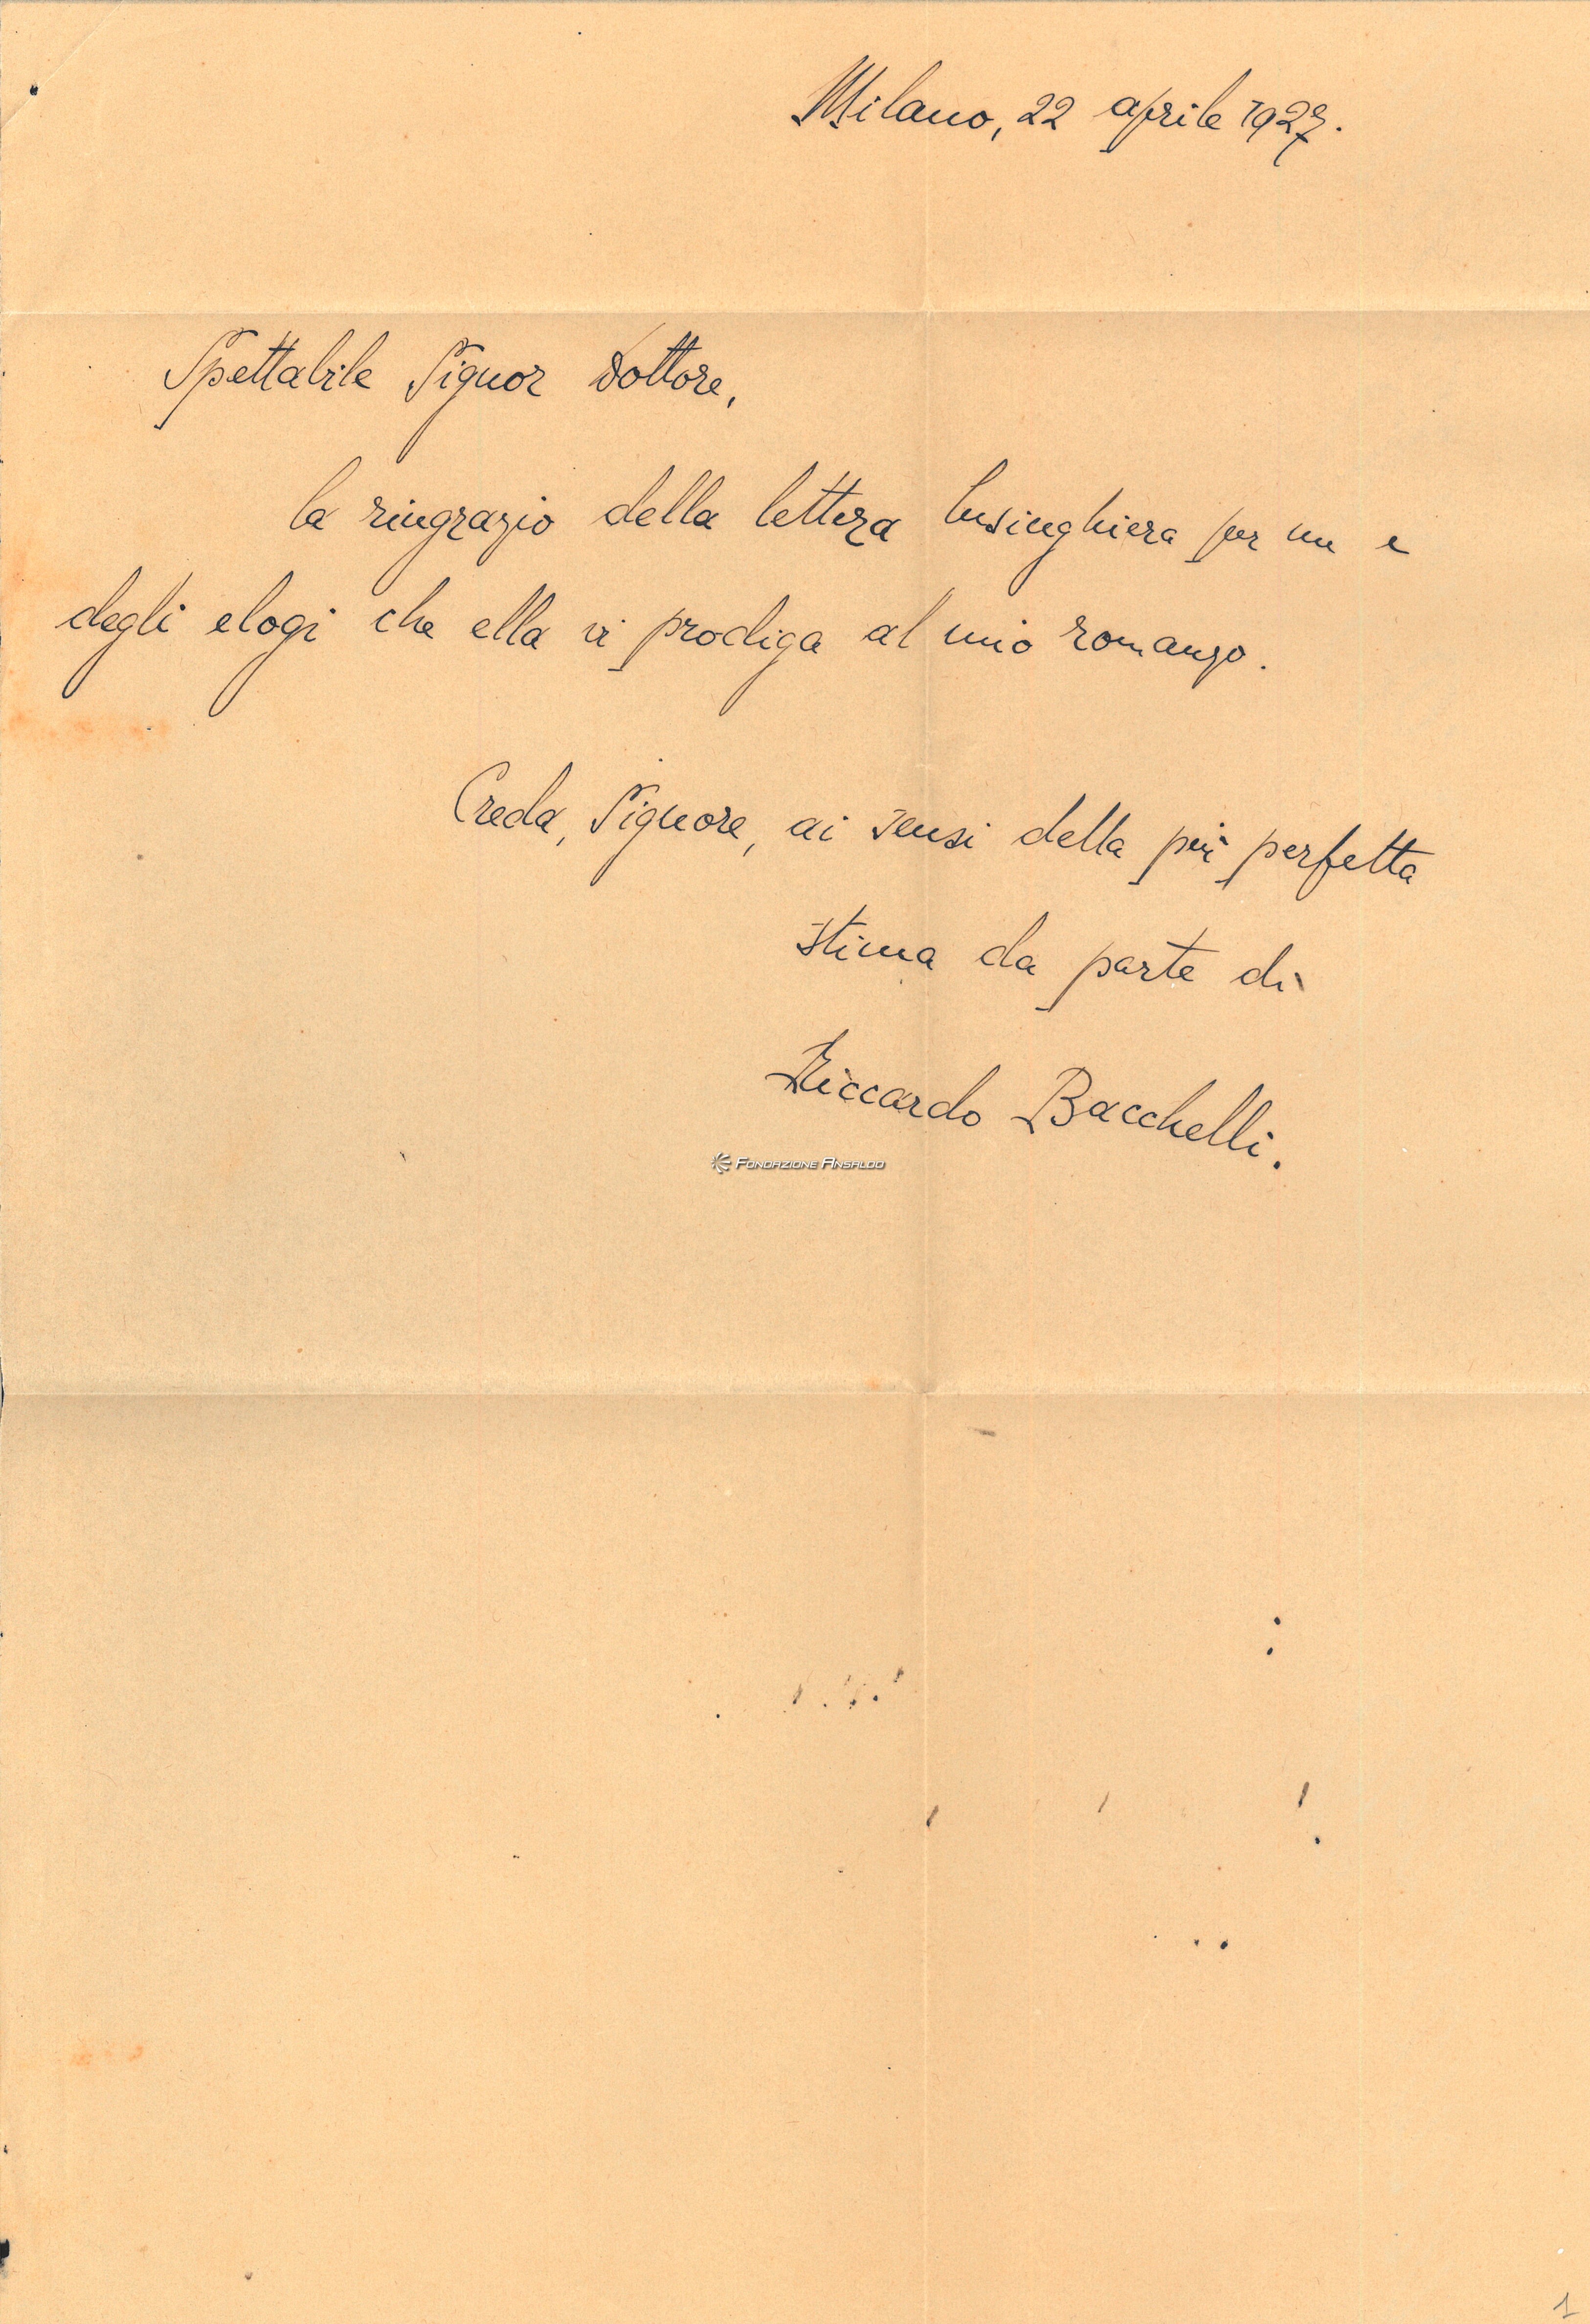 Milano, 22 aprile 1927.
Spettabile Signor Dottore,
la ringrazio della lettera lusinghiera per me e
degli elogi che ella vi prodiga al mio romanzo.
Creda, Signore, ai sensi della più perfetta
stima da parte di
Riccardo Bacchelli.
Fondazione Ansaldo
1